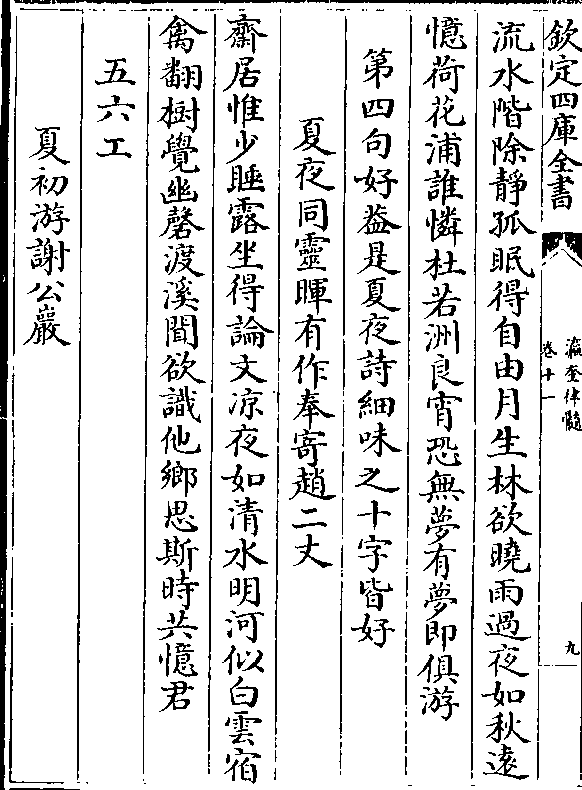 欽定四庫全書
瀛奎律髓
卷十一
九
流水階除靜孤眠得自由月生林欲曉雨過夜如秋遠
憶荷花浦誰憐杜若洲良宵恐無夢有夢即俱游
第四句好葢是夏夜詩細味之十字皆好
夏夜同靈暉有作奉寄趙二丈
齋居惟少睡露坐得論文凉夜如清水明河似白雲宿
禽翻樹覺幽磬渡溪聞欲識他鄉思斯時共憶君
五六工
夏初游謝公巖